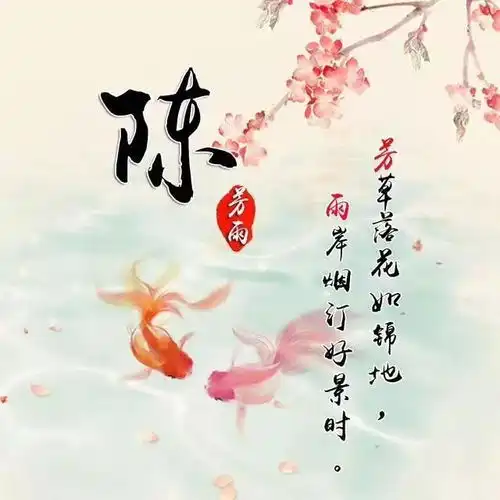 陈
芳雨
芳草落花如锦地，
雨岸烟汀好景时。